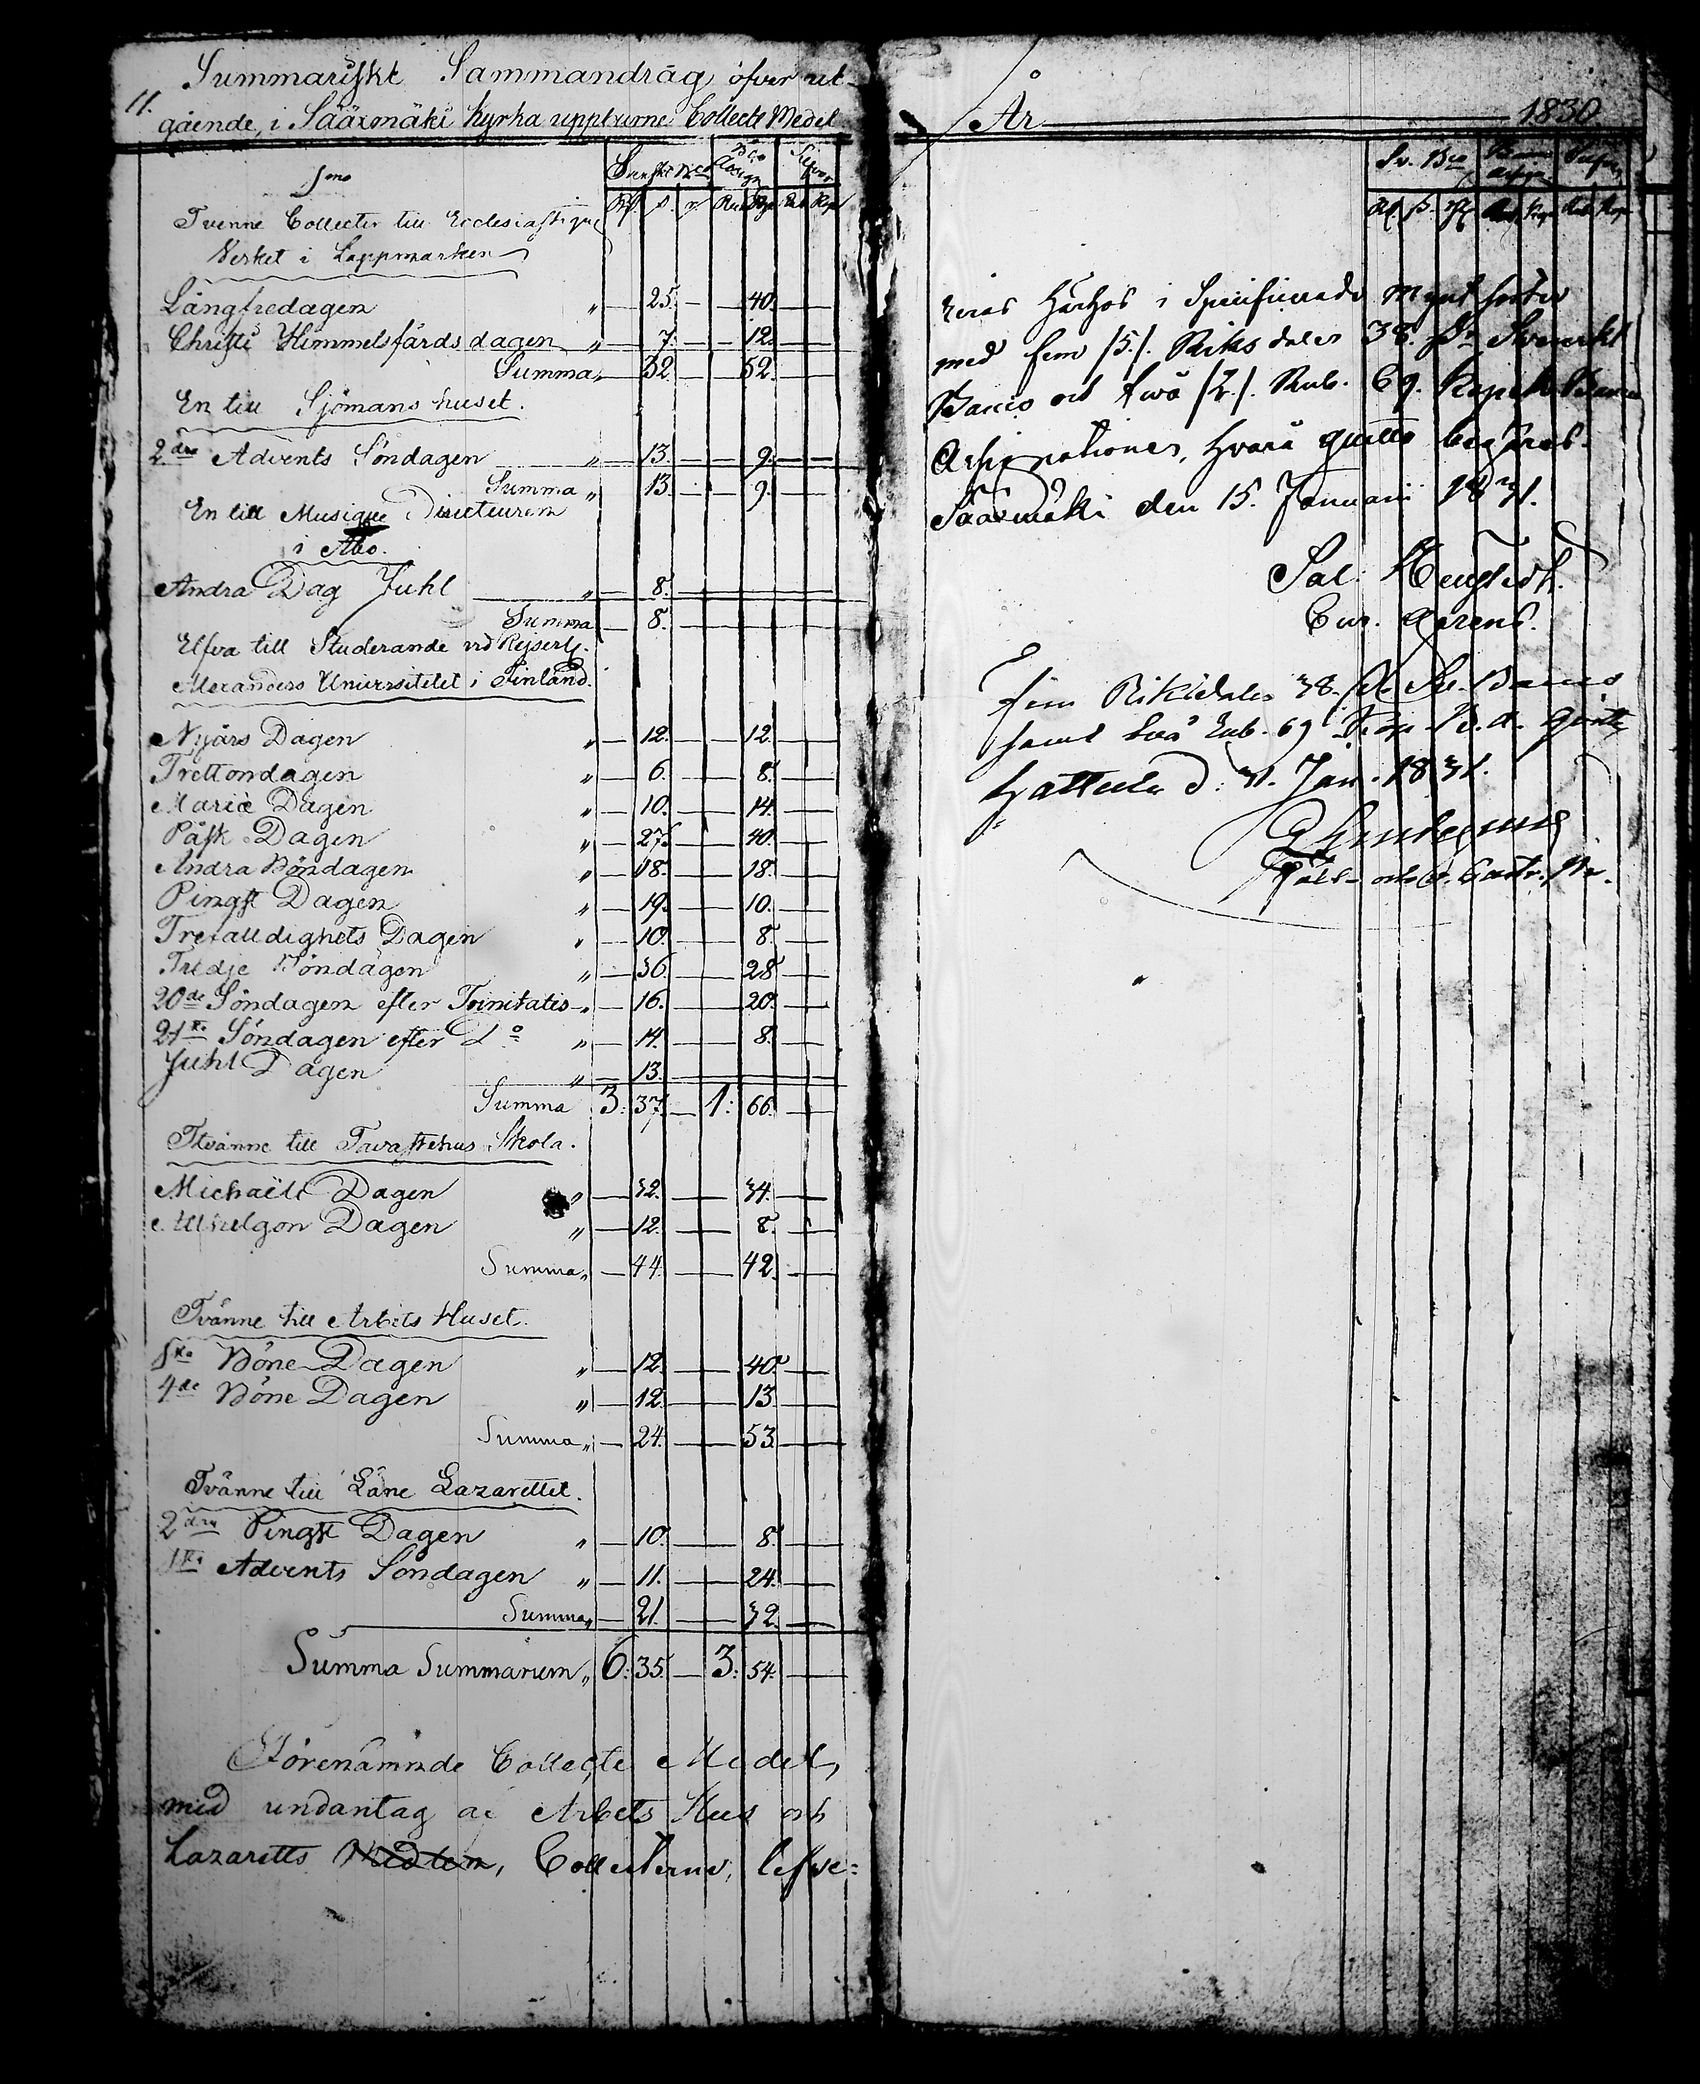 11.
Summariskt Sammandrag öfver ut-
gående, i Sääxmäki Kyrka upptagne Collecte Medel
Svenskt Bco Bco Assign Silfver
Rd ß. r. Rub Kop Rub Kop
1mo
Tvenne Collecter till Ecclesiastique
Verket i Lappmarken
Långfredagen " 25. 40.
Christi Himmelsfärds dagen " 7. 12.
Summa 32 52.
En till Sjömans huset.
2dra Advents Söndagen " 13. 9.
Summa " 13. 9.
En till Musique Directeuren
i Åbo.
Andra Dag Juhl " 8.
Summa 8.
Elfva till Studerande vid Kejserl.
Alexanders Universitetet i Finland.
Nyårs Dagen " 12. 12.
Trettondagen " 6. 8.
Mariæ Dagen " 10. 14.
Påsk Dagen " 27. 40.
Andra Böndagen " 18. 18.
Pingst Dagen " 19. 10.
Trefalldighets Dagen " 10. 8.
Tredje Böndagen " 36. 28
20de Söndagen efter Trinitatis " 16. 20.
21sta Söndagen efter Do " 14. 8.
Juhl Dagen " 13.
Summa 3: 37. 1: 66.
Tvänne till Tavastehus Skola.
Michaëli Dagen " 32. 34.
Allhelgon Dagen " 12. 8.
Summa " 44. 42.
Tvänne till Arbets Huset.
1sta Böne Dagen " 12. 40.
4de Böne Dagen " 12. 13
Summa " 24. 53.
Tvänne till Läne Lazarettet.
2dra Pingst Dagen " 10. 8.
1sta Advents Söndagen " 11. 24.
Summa " 21. 32.
Summa Summarum " 6: 35. 3: 54.
Förenämnde Collecte Medel,
med undantag af Arbets Hus och
Lazaretts Medlen, Collecterne, lefve=
År 1830
Sv. Bco Banco Assign Silfver
Rd ß. r. Rub Kop Rub Kop
reras härhos i Specificerade Myntsorter
med fem /5./. Riksdaler 38. ß Svenskt
Banco och två /2./. Rub. 69. Kopek Banco
Assignationer, hvarå quitto begäres.
Sääxmäki den 15. Januarii 1831.
Sal.
Cur. gerens.
Fem Riksdaler 38. ß Sv. Banco
samt två Rub. 69 Kop B. A. quitt.
Hattula d. 31. Jan. 1831.